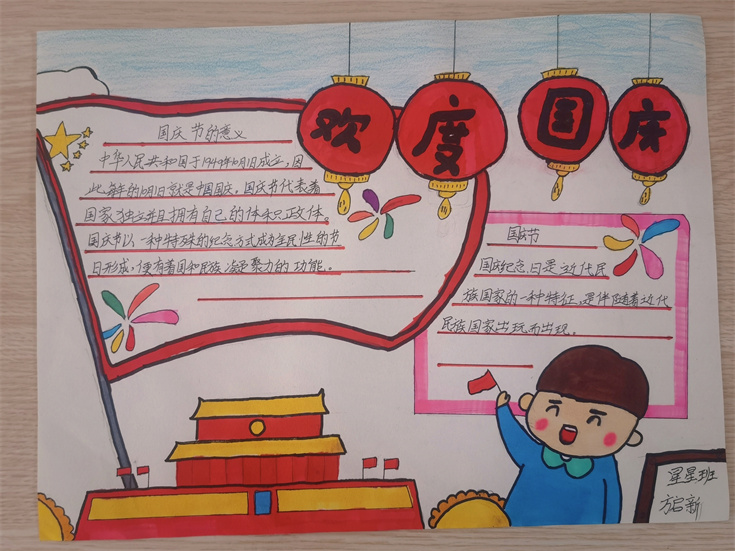 欢度国庆
国庆节的意义
中华人民共和国于1949年10月1日成立,因
此每年的10月1日就是中国国庆,国庆节代表着
国家独立并且拥有自己的体制只政体。
国庆节以一种特殊的纪念方式成为全民性的节
日形成,便有着国和民族凝聚力的功能。
国庆节
国庆纪念日是近代民
族国家的一种特征,是伴随着近代
民族国家出玩而出现。
星星班
方启新